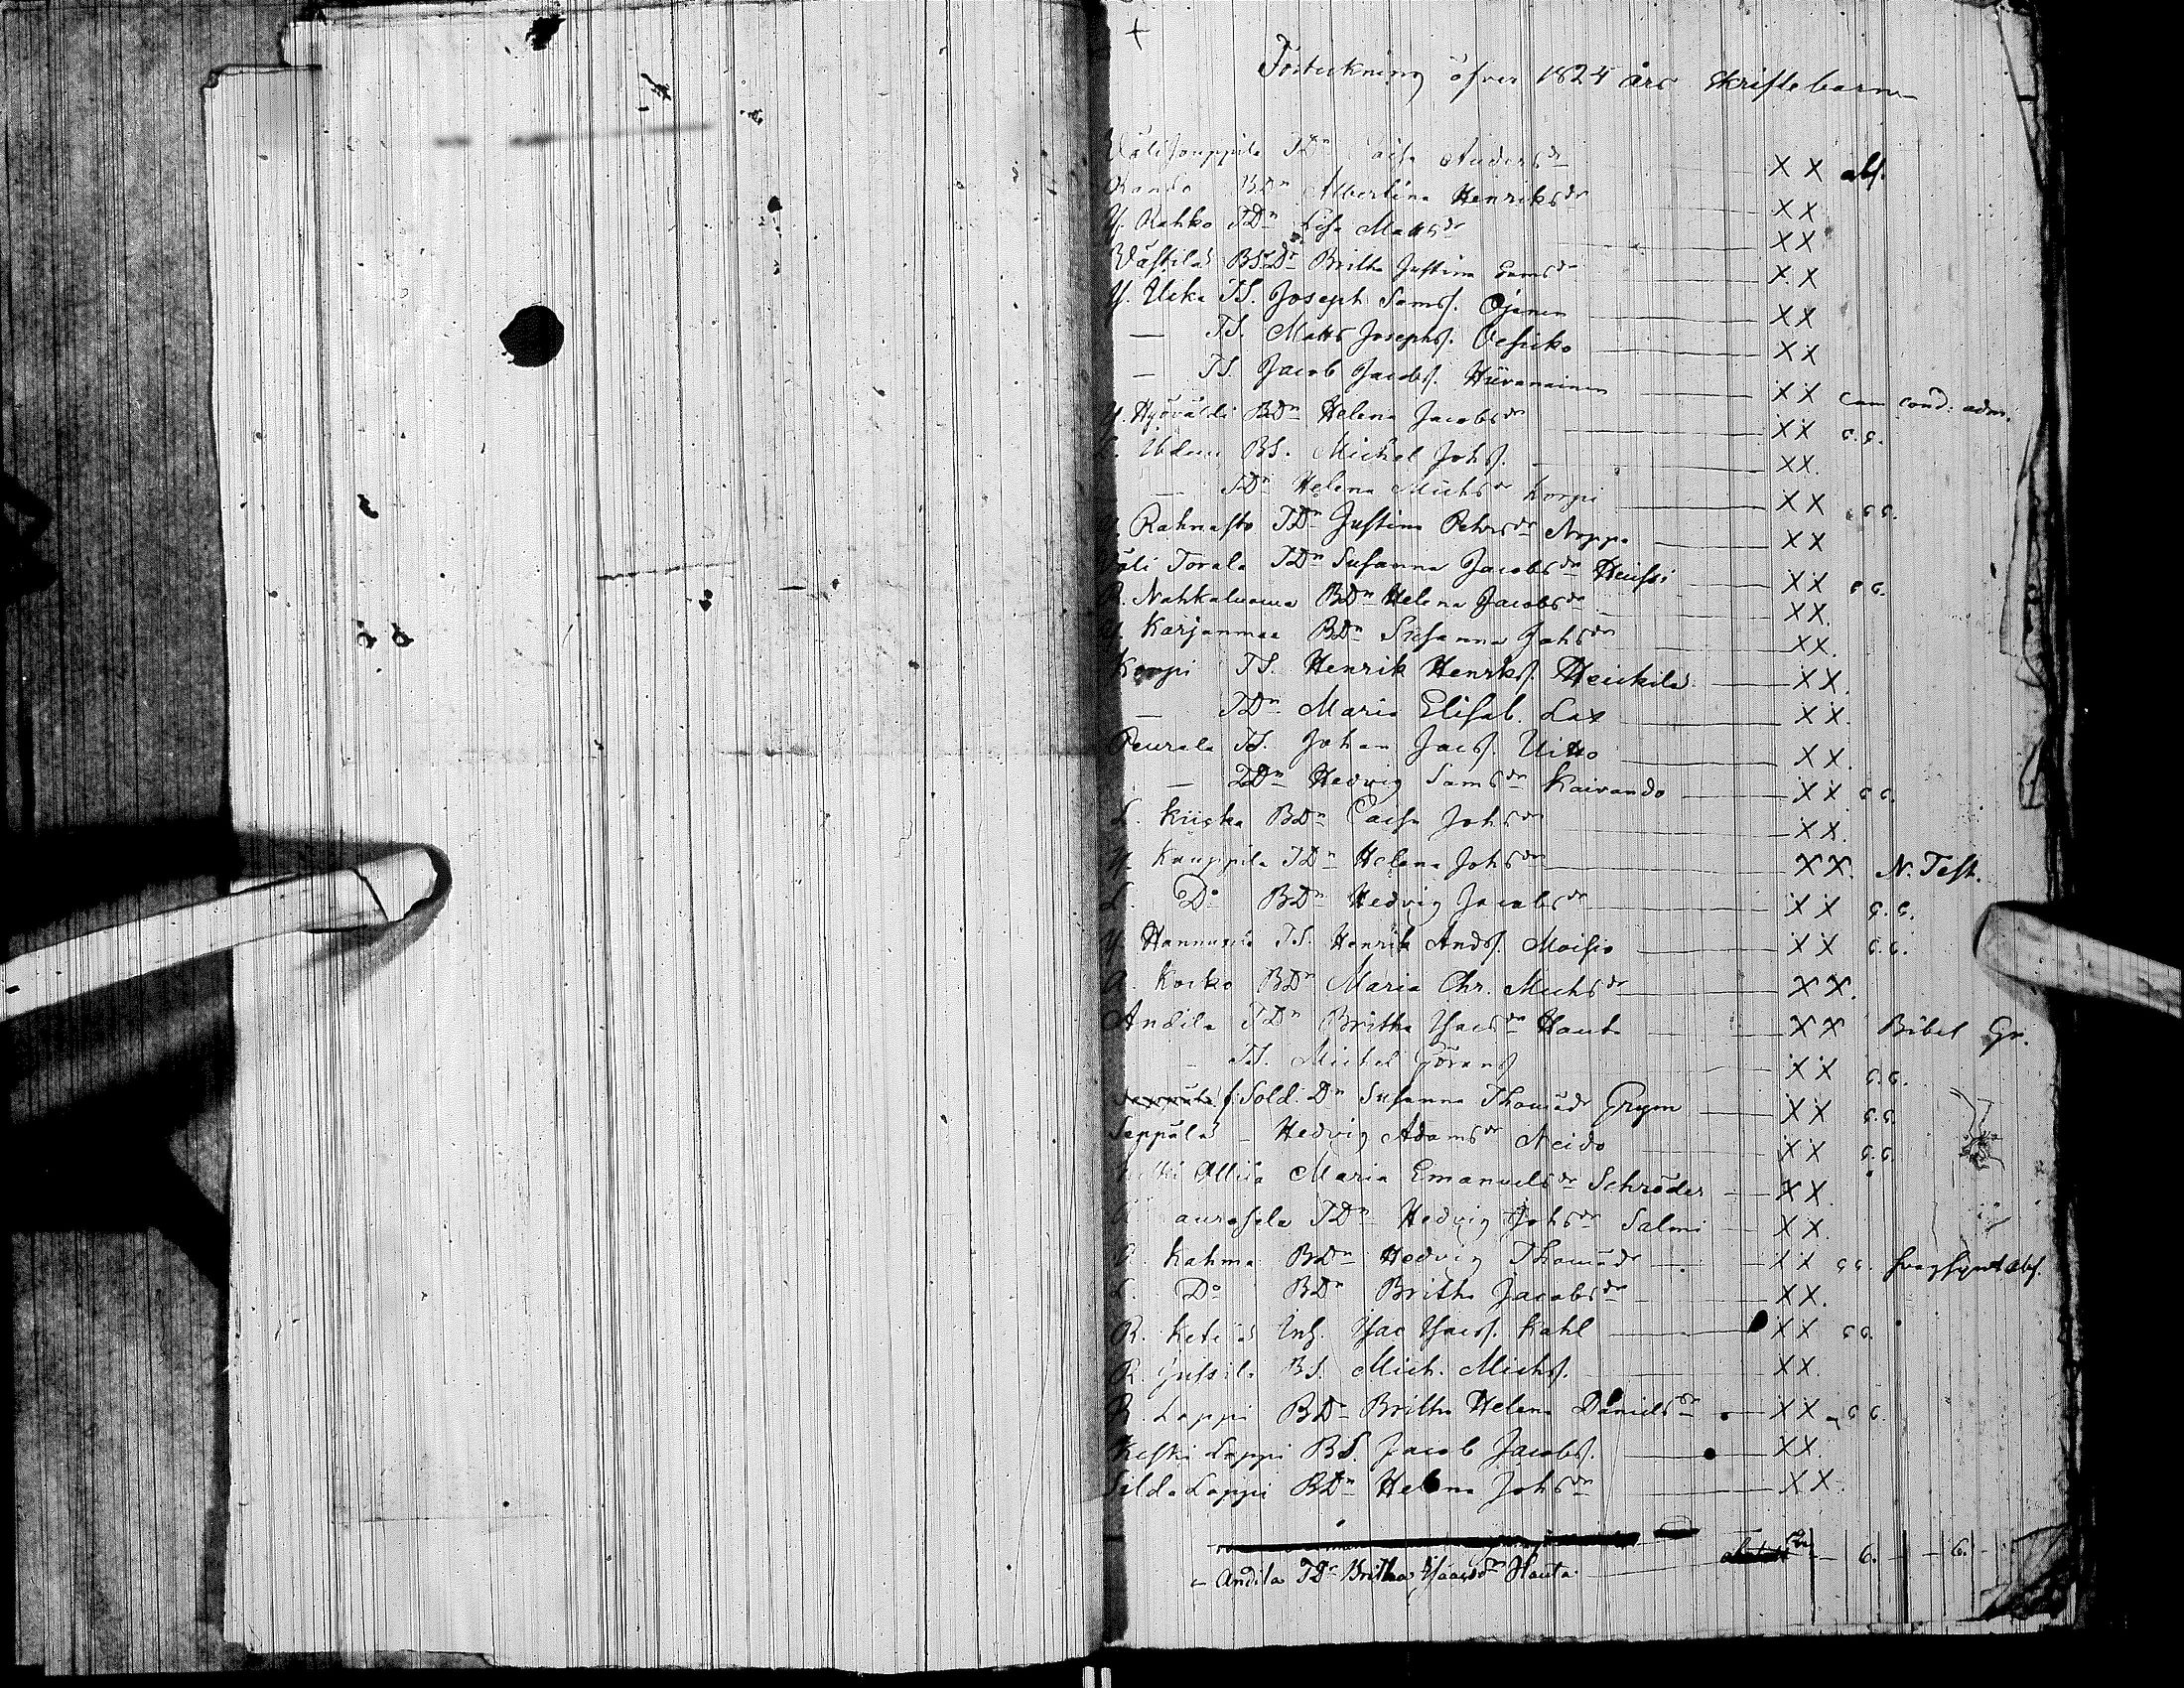 +
Förteckning öfver 1824 års Skriftebarn
Väli Jouppila TDr Caisa Andersdr XX abs.
Randa BDr Albertina Henriksdr XX
Y. Rahko TDr Lisa Mattsdr XX
Västilä BSDr Britha Justina Samsdr XX
Y. Ucka TS. Joseph Samss. Ojanen XX
— TS. Matts Josephs. XX
— TS. Jacob Jacobs. XX cum cond: adm.
Y. Hyövälti BDr Helena Jacobsdr XX c.c.
BS. Michel Johss. XX.
— TDr Helena Michsdr Korpi XX c.c.
Rahnasto TDr Justina Petersdr Noppa XX
Väli Torala TDr Susanna Jacobsdr Heussi XX c.c.
Nahkaluoma BDr Helena Jacobsdr XX.
Karjanmaa BDr Susanna Johsdr XX.
Korpi TS. Henrik Henrikss. Heickilä XX.
— TDr Maria Elisab. Lax XX.
Peurala TS. Johan Jacss. Uitto XX.
— TDr Hedvig Samsdr Kaivando XX c.c.
L. Kiiska BDr Caisa Johsdr XX.
Y. Kauppila TDr Helena Johsdr XX. N. Test.
L. Do BDr Hedvig Jacobsdr XX c.c.
Y Hannuxela TS. Henrik Ands. Moisio XX c.c.
Koiko BDr Maria Chr. Michsdr XX.
Andila TDr Britha Isacsdr Hauta XX Bibel Gr.
— TS. Michel Görans XX c.c.
f. Sold. Dr Susanna Thomædr Grym XX c.c.
Seppälä — Hedvig Adamsdr Neido XX c.c.
Ollila Maria Emanuelsdr Schröder XX.
TDr Hedvig Johsdr Salmi XX.
Kahma BDr Hedvig Thomædr XX c.c. svagsynt abs.
L. Do BDr Britha Jacobsdr XX.
R. Inh. Isac Isacss. Kahl XX c.c.
R. Jussila BS. Mich. Michss. XX.
R. Lappi BDr Britha Helena Danielsdr XX c.c.
Keski Lappi BS. Jacob Jacobs. XX.
Silda Lappi BDr Helena Johsdr XX.
— Andila TDr Britha Isacsdr Hauta — 6. — 6.